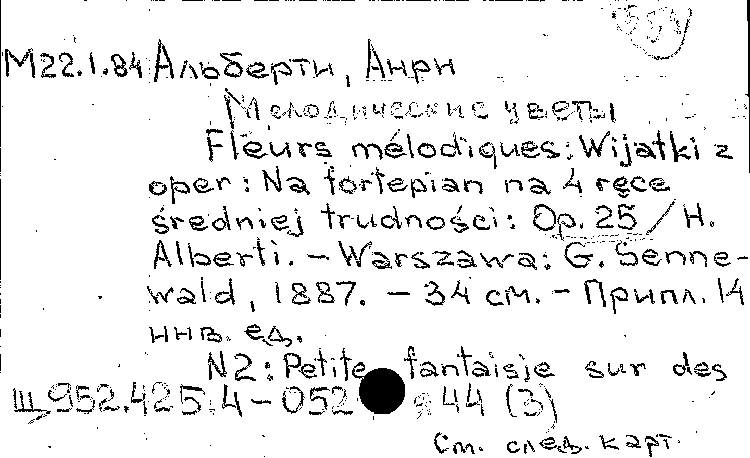 М22.1.84 Альберти, Анри
Мелодические цветы
Fleurs mélodiques: Wijatki z
oper: Na fortepian na 4 ręce
średniej trudności: Op. 25 / H.
Alberti. – Warszawa: G. Senne-
wald, 1887. – 34 см. – Припл. 14
инв. ед.
N2: Petite fantaisie sur des
Щ952.425.4–052 я 44 (3)
См. след. карт.